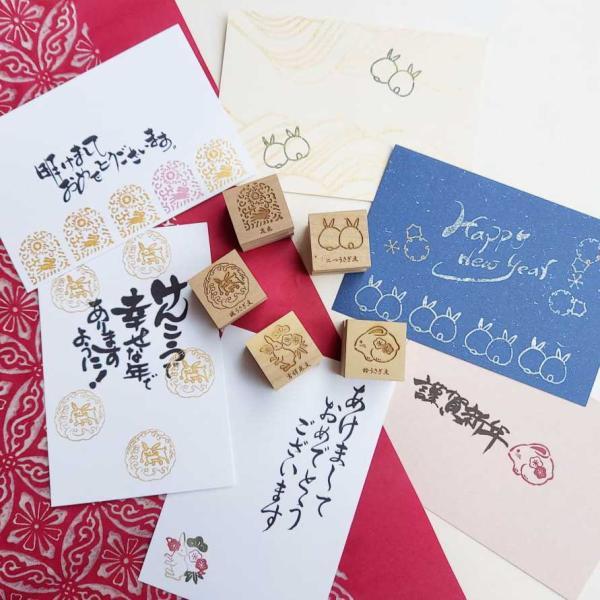 明けまして
おめでとうございます。
Happy
new Year
けんこうで
幸せな年で
あります
ように!
謹賀新年
あけまして
おめでとう
ございます
二つうさぎ文